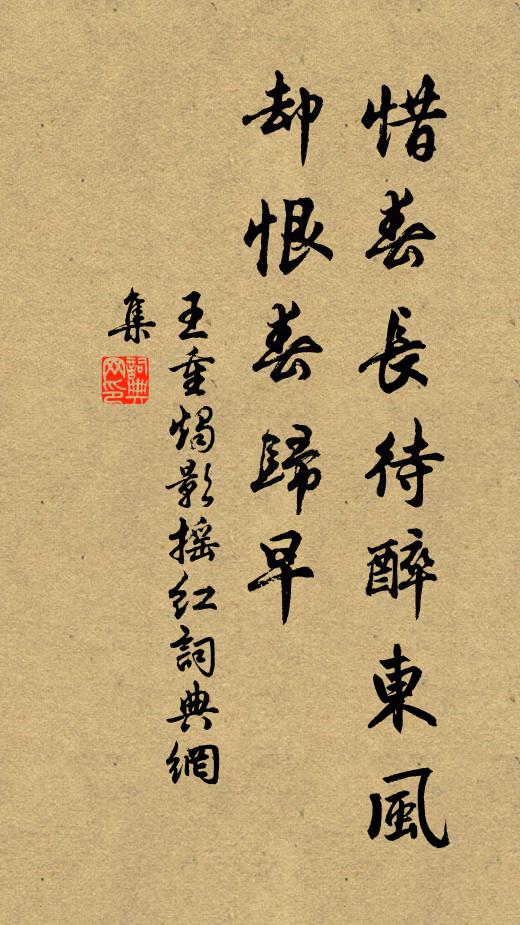 惜春長待醉東風
却恨春歸早
王重燭影摇红詞典網
集
詞典
网印